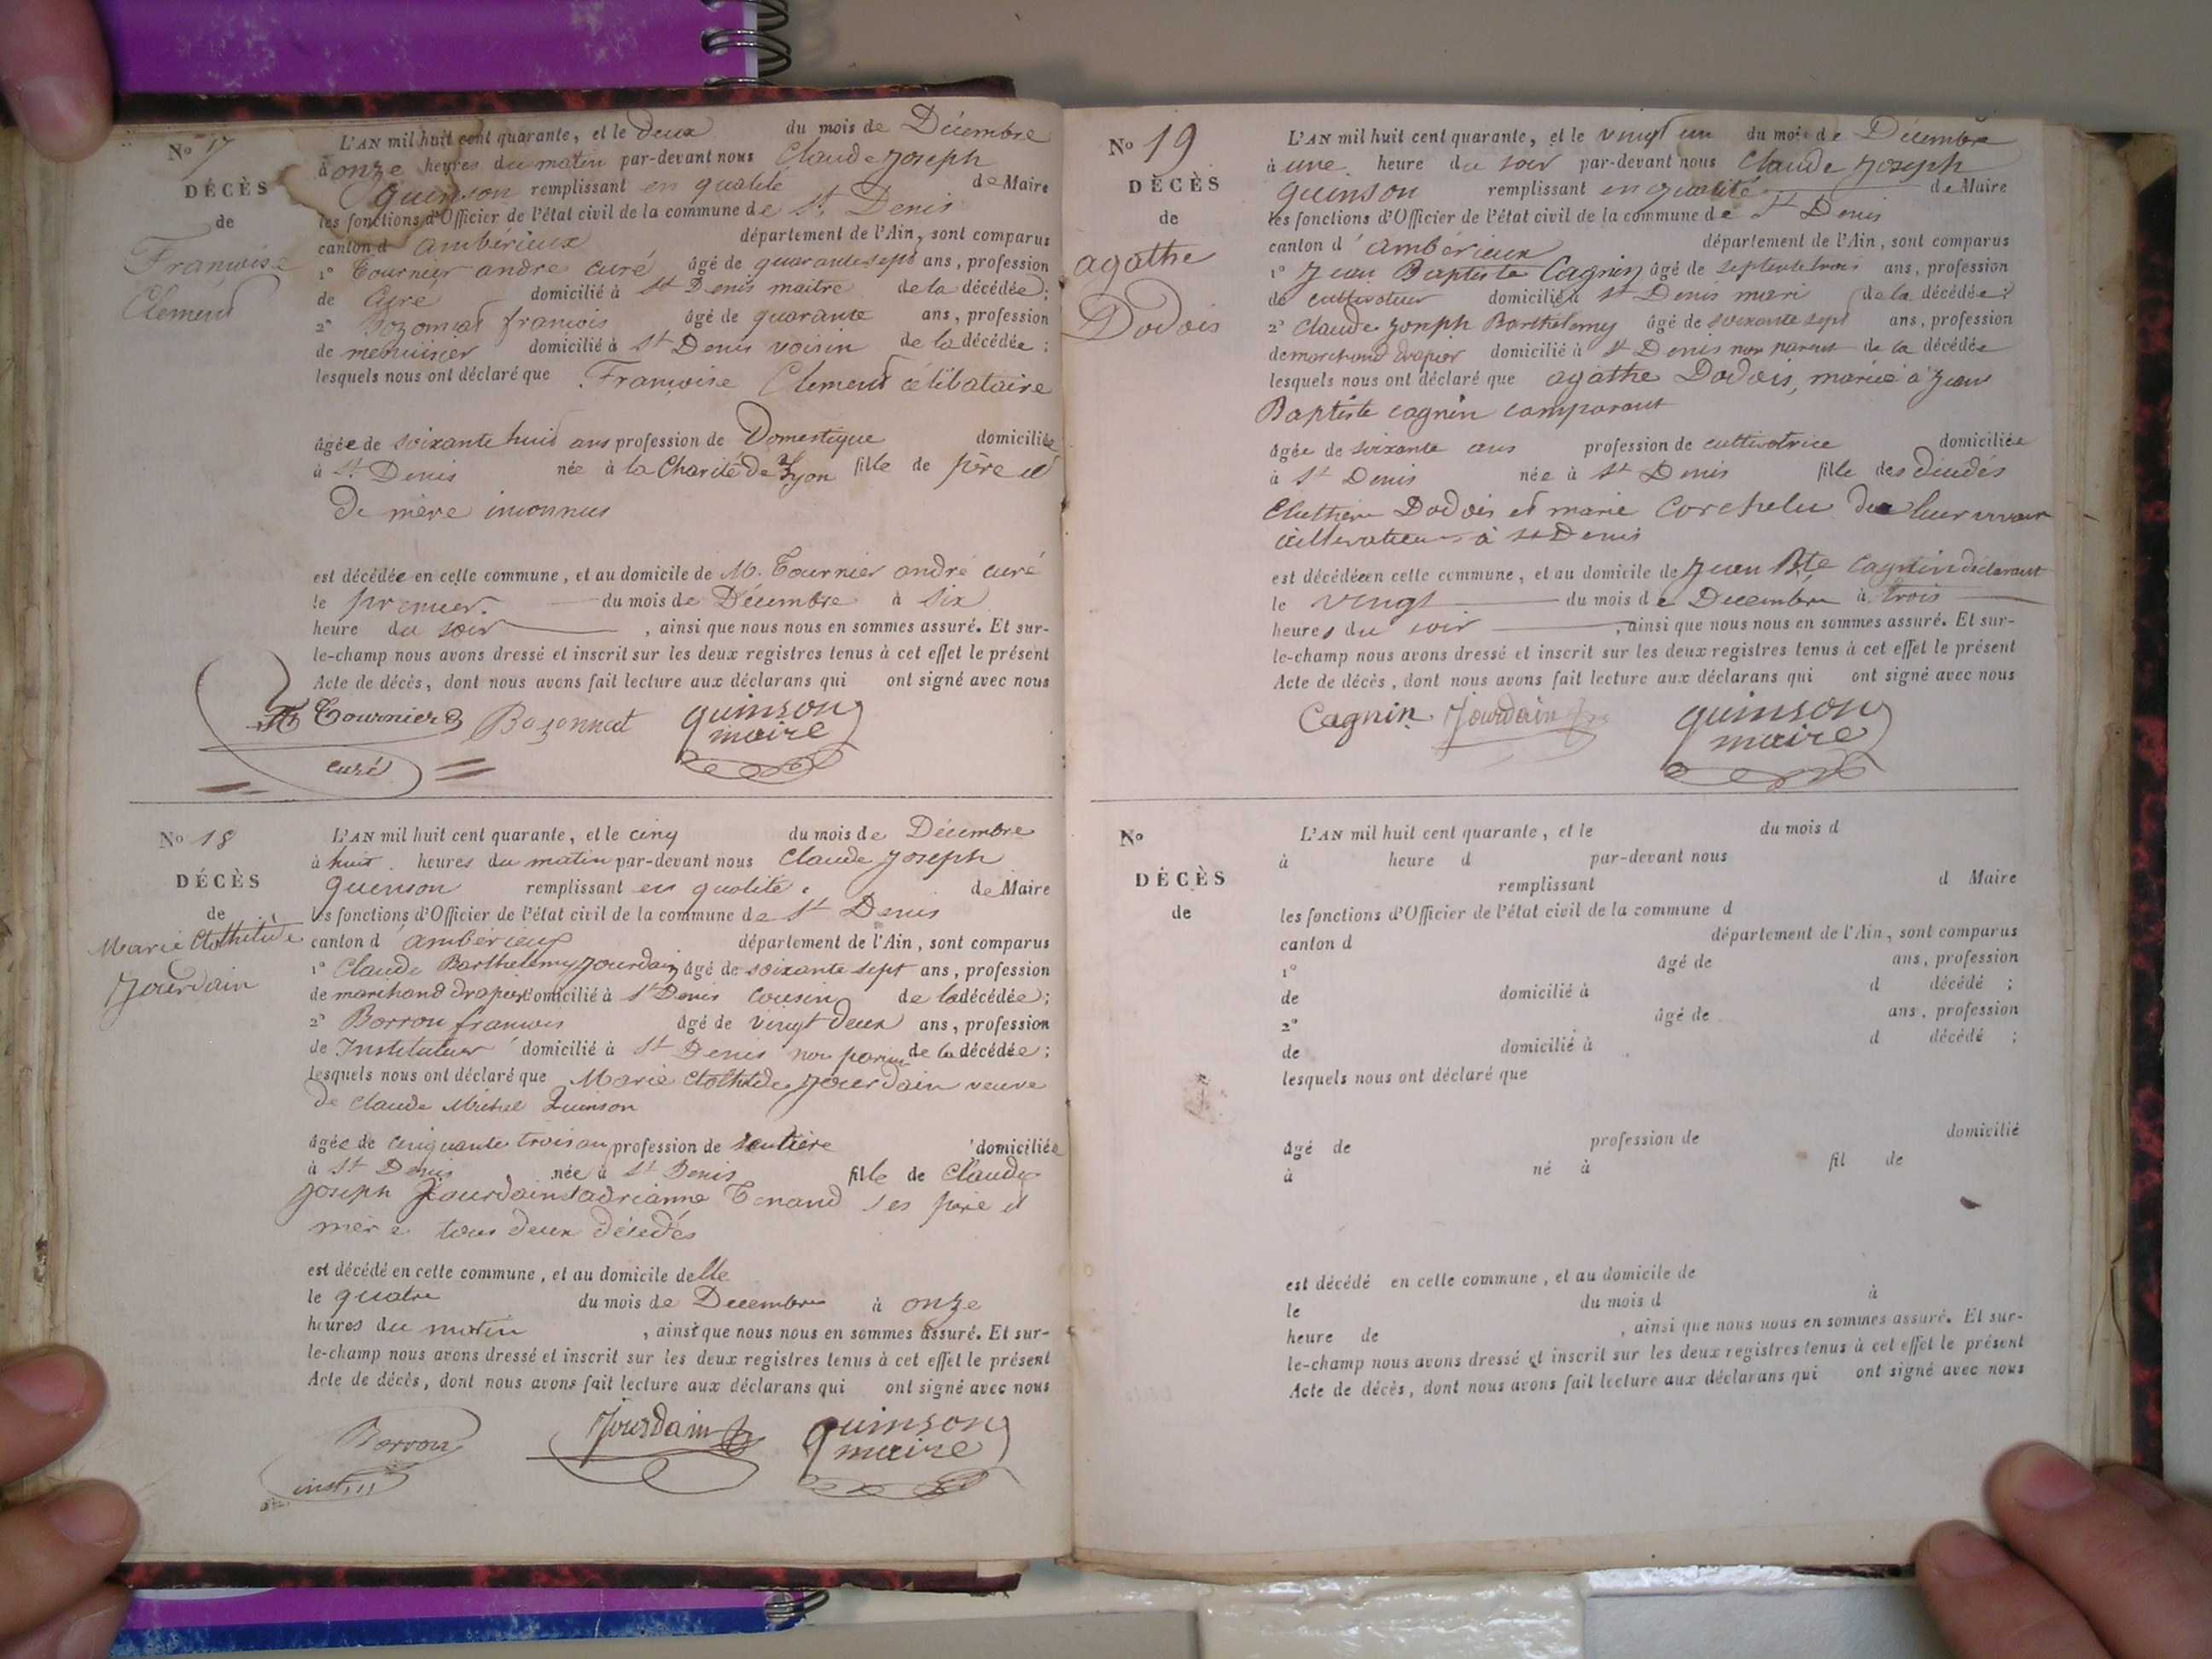 No 17
DÉCÈS
de
Françoise
Clement
L'AN mil huit cent quarante, et le deux du mois de Décembre
à onze heures du matin par-devant nous Claude Joseph
Quinson remplissant en qualité de Maire
les fonctions d'Officier de l'état civil de la commune de St Denis
canton d'ambérieux département de l'Ain, sont comparus
1° Tournier andré curé âgé de quarante sept ans, profession
de Curé domicilié à St Denis maitre de la décédée;
2° Bozonnat francois âgé de quarante ans, profession
de menuisier domicilié à St Denis voisin de la décédée;
lesquels nous ont déclaré que Françoise Clement célibataire
âgée de soixante huit ans profession de Domestique domiciliée
à St Denis née à la Charité de Lyon fille de père et
De mère inconnus
est décédée en cette commune, et au domicile de M. Tournier andré curé
le premier du mois de Décembre à six
heure du soir, ainsi que nous nous en sommes assuré. Et sur-
le-champ nous avons dressé et inscrit sur les deux registres tenus à cet effet le présent
Acte de décès, dont nous avons fait lecture aux déclarans qui ont signé avec nous
Tournier Bozonnat quinson
maire
curé
No 18
DÉCÈS
de
Marie Clothilde
Jourdain
L'AN mil huit cent quarante, et le cinq du mois de Décembre
à huit heures du matin par-devant nous Claude Joseph
Quinson remplissant en qualité de Maire
les fonctions d'Officier de l'état civil de la commune de St Denis
canton d'ambérieux département de l'Ain, sont comparus
1° Claude Barthelemy Jourdain âgé de soixante sept ans, profession
de marchand drapier domicilié à St Denis cousin de la décédée;
2° Borron francois âgé de vingt deux ans, profession
de Instituteur domicilié à St Denis non parent de la décédée;
lesquels nous ont déclaré que Marie Clothilde Jourdain veuve
De Claude Michel Quinson
âgée de cinquante trois ans profession de rentière domiciliée
à St Denis née à St Denis fille de Claude
Joseph Jourdain adrianne Tenand ses père et
mère tous deux décédés
est décédé en cette commune, et au domicile delle
le quatre du mois de Decembre à onze
heures du matin, ainsi que nous nous en sommes assuré. Et sur-
le-champ nous avons dressé et inscrit sur les deux registres tenus à cet effet le présent
Acte de décès, dont nous avons fait lecture aux déclarans qui ont signé avec nous
Borron Jourdain quinson
maire
inst
No 19
DÉCÈS
de
agathe
Dodois
L'AN mil huit cent quarante, et le vingt un du mois de Décembre
à une heure du soir par-devant nous Claude Joseph
quinson remplissant en qualité de Maire
les fonctions d'Officier de l'état civil de la commune de St Denis
canton d'ambérieux département de l'Ain, sont comparus
1° Jean Baptiste Cagnin âgé de septante trois ans, profession
de cultivateur domicilié à St Denis mari de la décédée;
2° Claude Joseph Barthelemy âgé de soixante sept ans, profession
de marchand drapier domicilié à St Denis non parent de la décédée
lesquels nous ont déclaré que agathe Dodois, mariée à Jean
Baptiste cagnin comparant
âgée de soixante ans profession de cultivatrice domiciliée
à St Denis née à St Denis fille des
Dodois et marie leur vivant
cultivateurs à St Denis
est décédée en cette commune, et au domicile de Jean Bte Cagnin déclarant
le vingt du mois de Decembre à trois
heures du soir, ainsi que nous nous en sommes assuré. Et sur-
le-champ nous avons dressé et inscrit sur les deux registres tenus à cet effet le présent
Acte de décès, dont nous avons fait lecture aux déclarans qui ont signé avec nous
Cagnin Jourdain quinson
maire
No
DÉCÈS
de
L'AN mil huit cent quarante, et le du mois d
à heure d par-devant nous
remplissant d Maire
les fonctions d'Officier de l'état civil de la commune d
canton d département de l'Ain, sont comparus
1° âgé de ans, profession
de domicilié à d décédé;
2° âgé de ans, profession
de domicilié à d décédé;
lesquels nous ont déclaré que
âgé de profession de domicilié
à né à fil de
est décédé en cette commune, et au domicile de
le du mois d à
heure de, ainsi que nous nous en sommes assuré. Et sur-
le-champ nous avons dressé et inscrit sur les deux registres tenus à cet effet le présent
Acte de décès, dont nous avons fait lecture aux déclarans qui ont signé avec nous